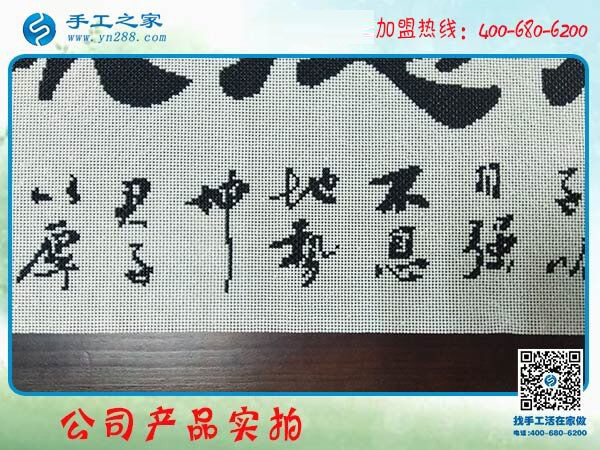 手工之家
www.yn288.com
加盟热线：400-680-6200
子以
自强
不息
地势
坤
君子
以厚
公司产品实拍
找手工活在家做
电话:400-680-6200